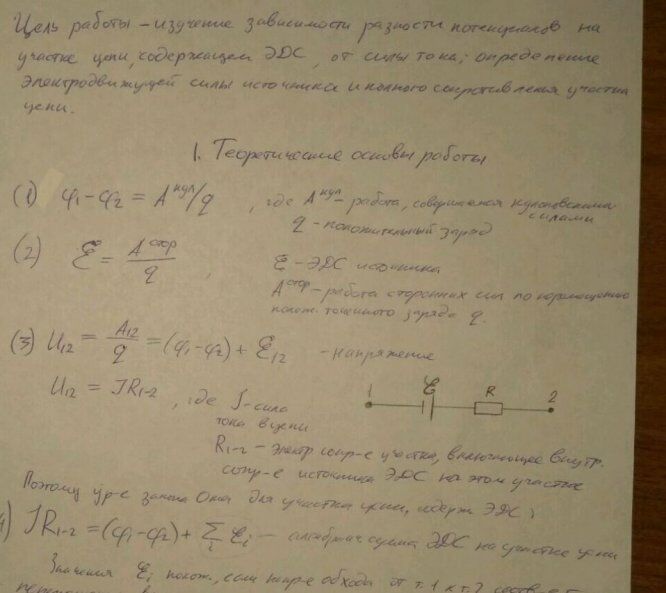 Цель работы – изучение зависимости разности потенциалов на
участке цепи, содержащем ЭДС, от силы тока; определение
электродвижущей силы источника и полного сопротивления участка
цепи.
1. Теоретические основы работы
(1) φ₁-φ₂ = Aᵏʸᴸ/q , где Aᵏʸᴸ – работа, совершаемая кулоновскими
силами
q - положительный заряд
(2) ℰ = Aᶜᵗᵒᵖ/q , ℰ - ЭДС источника
Aᶜᵗᵒᵖ – работа сторонних сил по перемещению
полож. точечного заряда q.
(3) U₁₂ = A₁₂/q = (φ₁-φ₂) + ℰ₁₂ - напряжение
U₁₂ = IR₁₋₂ , где I - сила
тока в цепи
1 ℰ R 2
R₁₋₂ – электр сопр-е участка, включающее внутр.
сопр-е источника ЭДС на этом участке
Поэтому ур-е закона Ома для участка цепи, содерж ЭДС:
) IR₁₋₂ = (φ₁-φ₂) + ∑ᵢ ℰᵢ – алгебраич сумма ЭДС на участке цепи
Значения ℰᵢ полож., если напр-е обхода от т.1 к т.2